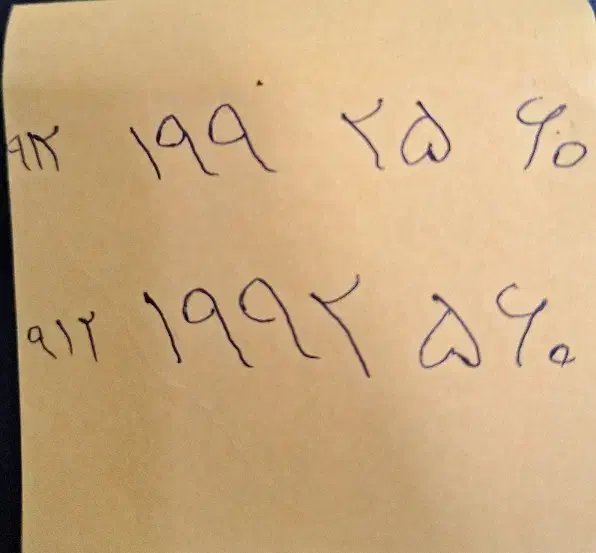 ۹۱۲ ۱۹۹ ۲۵ ۶۰
۹۱۲ ۱۹۹۲ ۵۶۰